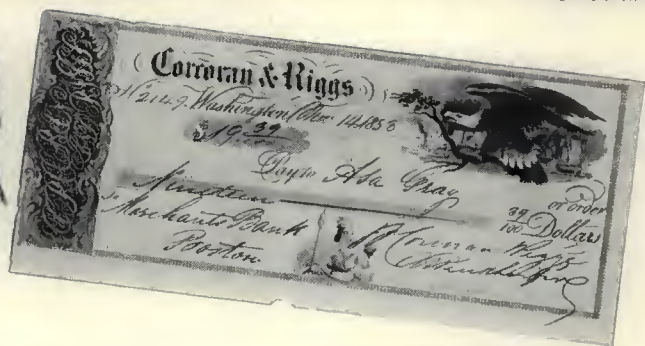 Corcoran & Riggs
No 2149. Washington, 14 1853
$19 39/100
Pay to Asa Gray
or order
Nineteen 39/100 Dollars
To Merchants Bank
Boston.
Corcoran & Riggs